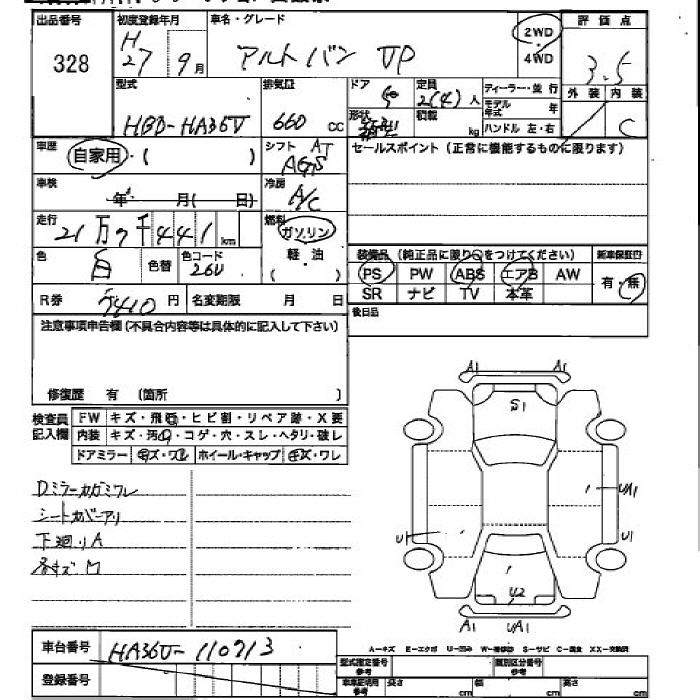 出品番号 初度登録年月 車名・グレード 評価点
328 H27 9月 アルトバン VP 2WD 4WD 3.5
外装 内装
C
型式 排気量 ドア 定員 ディーラー・並行
HBD-HA36V 660 cc 5 2(4)人 モデル年式 年
形状 積載 kg ハンドル 左・右
車歴 自家用・( ) シフト AT AGS セールスポイント (正常に機能するものに限ります)
車検 年 月( 日) 冷房 A/C
走行 21万7千441km 燃料 ガソリン
軽・油
( )
色 白 色替 色コード 26U
装備品 (純正品に限り○をつけてください) 新車保証書
PS PW ABS エアB AW 有・無
SR ナビ TV 本革
R券 7410円 名変期限 月 日 後日品
注意事項申告欄 (不具合内容等は具体的に記入して下さい)
修復歴 有 (箇所 )
検査員記入欄 FW キズ・飛石・ヒビ割・リペア跡・X要
内装 キズ・汚れ・コゲ・穴・スレ・ヘタリ・破レ
ドアミラー キズ・ワレ ホイール・キャップ キズ・ワレ
Dミラーカガミワレ
シートカバーアリ
下廻リA
A1 A1
S1
UA1
U1 U1
U2
A1 UA1
A-キズ E-エクボ U-凹み W-補修跡 S-サビ C-腐食 XX-交換済
車台番号 HA36V-110713
登録番号
型式指定番号 参考 類別区分番号 参考
車車証明用 参考 長さ cm 幅 cm 高さ cm